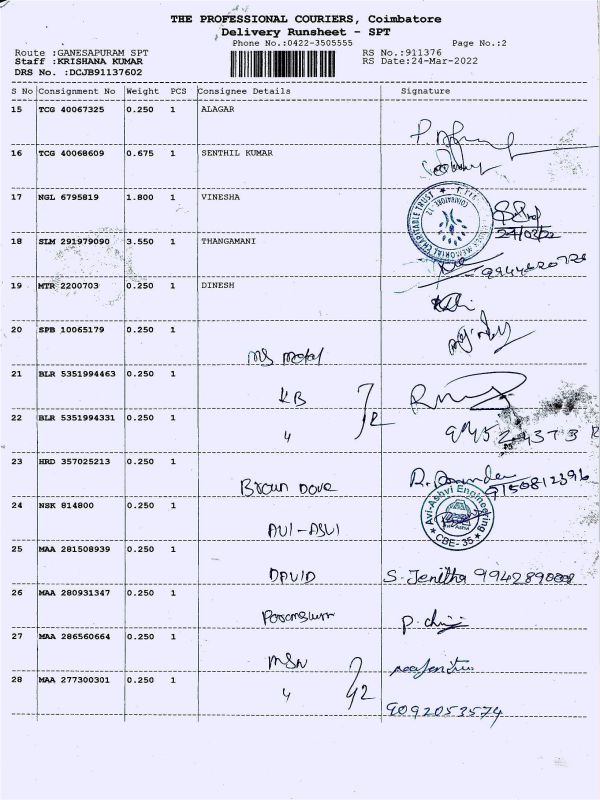 THE PROFESSIONAL COURIERS, Coimbatore
Delivery Runsheet - SPT
Phone No.:0422-3505555 Page No.:2
Route :GANESAPURAM SPT RS No.:911376
Staff :KRISHANA KUMAR RS Date:24-Mar-2022
DRS No. :DCJB91137602
S No Consignment No Weight PCS Consignee Details Signature
15 TCG 40067325 0.250 1 ALAGAR
16 TCG 40068609 0.675 1 SENTHIL KUMAR
17 NGL 6795819 1.800 1 VINESHA
MEMORIAL CHARITABLE TRUST
24/03/22
18 SLM 291979090 3.550 1 THANGAMANI
9944620726
19 MTR 2200703 0.250 1 DINESH
20 SPB 10065179 0.250 1
21 BLR 5351994463 0.250 1 KB
22 BLR 5351994331 0.250 1 "
23 HRD 357025213 0.250 1 Brown Dove
9150812396
24 NSK 814800 0.250 1 AVI-ASVI
Avi-Ashvi Engineering
CBE-35
25 MAA 281508939 0.250 1 DAVID S. Jenitha
26 MAA 280931347 0.250 1
27 MAA 286560664 0.250 1 MSN
28 MAA 277300301 0.250 1 " 9092053574